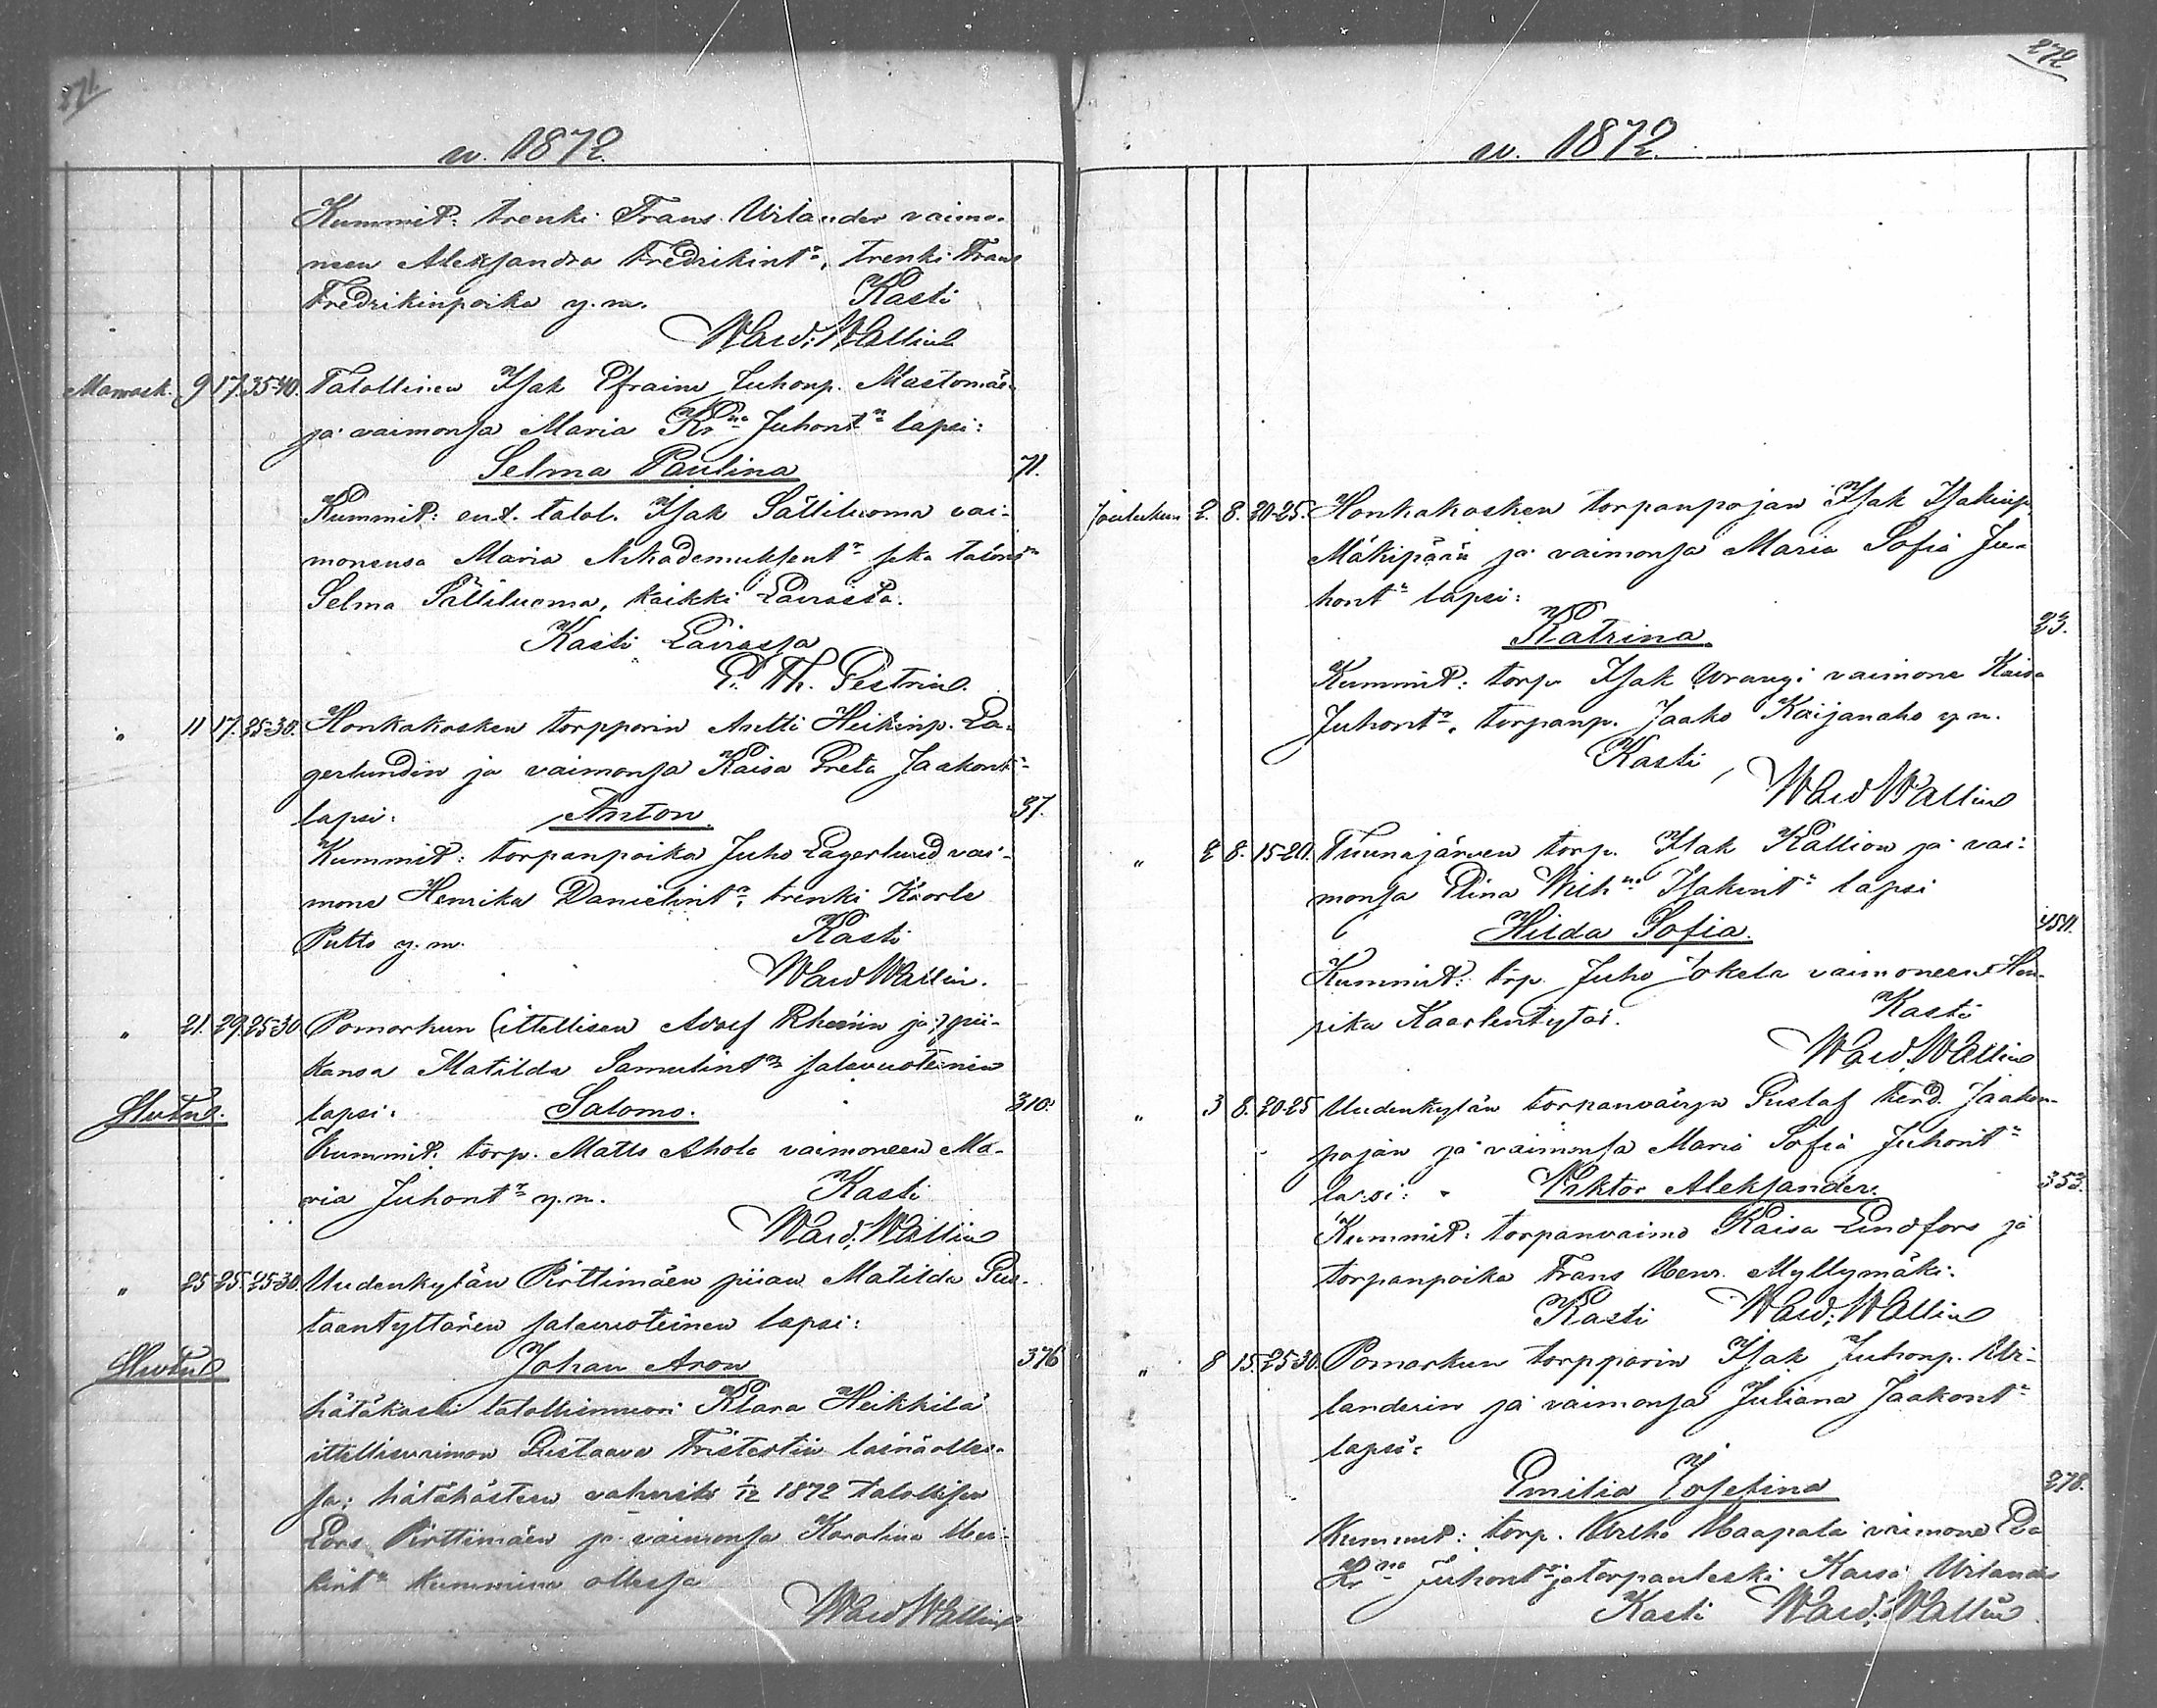 271.
w. 1872.
Kummit: trenki Frans Wilander vaimo-
neen Aleksandra Fredrikint:, trenki Frans
Fredrikinpoika y.m. Kasti
Ward: Wallin
Marrask. 9 17. 35-40. Talollisen Isak Efraim Juhonp. Mastomäe
ja vaimonsa Maria Kr:na Juhont:n lapsi:
Selma Paulina 71.
Kummit: ent. talol. Isak Sältiluoma vai-
monensa Maria Nikodemuksent:r seka talon
Selma Sältiluoma, kaikki Laviasta.
Kasti Laviassa
G. Th. Pestrin
" 11 17. 25-30. Honkakosken torpparin Antti Heikinp. La-
gerlundin ja vaimonsa Kaisa Greta Jaakont:n
lapsi: Anton. 37.
Kummit: torpanpoika Juho Lagerlund vai-
mone Henrika Danielint:r, trenki Kaarle
Putto y.m. Kasti
Ward Wallin.
" 21. 29. 25-30 Pomarkun (ittellisen Adolf Rhenin ja:) pii-
kansa Matilda Samulint:n salavuoteinen
lapsi: Salomo. 310.
Kummit: torp. Matts Ahola vaimoneen Ma-
ria Juhont:r y.m. Kasti
Ward: Wallin
" 25 25. 25-30. Uudenkylän Pirttimäen piian Matilda Kus-
taantyttären salavuoteinen lapsi:
Johan Aron 376
hätäkasti talollisenvaimo Klara Heikkilä
ittellisvaimon Kustaava läsnäolles-
sa; hätäkasteen vahvisti 1/12 1872 talollisen
Lars Pirttimäen ja vaimonsa Karolina
kint:n kummina ollessa
Ward Wallin
272
w. 1872.
Joulukuu 2. 8. 20-25. Honkakosken torpanpojan Isak Isakinp.
Mäkipään ja vaimonsa Maria Sofia Ju-
hont:n lapsi:
Katrina. 23.
Kummit: torp. Isak Wrangi vaimone Kaisa
Juhont:r, torpanp. Jaako Kaijanaho y.m.
Kasti
Ward Wallin
" 2 8. 15-20. Tuunajärven torp. Isak Kallion ja vai-
monsa Elina Wilh:na Isakint:n lapsi
Hilda Sofia. 450.
Kummit: trp. Juho Jokela vaimoneen Hen-
rika Kaarlentytär.
Kasti
Ward. Wallin
" 3 8. 20-25 Uudenkylän torpanväyn Gustaf Ferd. Jaakon-
pojan ja vaimonsa Maria Sofia Juhont:n
lapsi: Viktor Aleksander. 353.
Kummit: torpanvaimo Kaisa Lindfors ja
torpanpoika Frans Henr. Myllymäki.
Kasti Ward: Wallin
" 8 15. 25-30. Pomarkun torpparin Isak Juhonp. Wi-
landerin ja vaimonsa Juliana Jaakont:n
lapsi:
Emilia Josefina 278.
Kummit: torp. Haapala vaimone Eva
Kr:na Juhont:r ja torpanleski Kaisa Wilander
Kasti Ward: Wallin